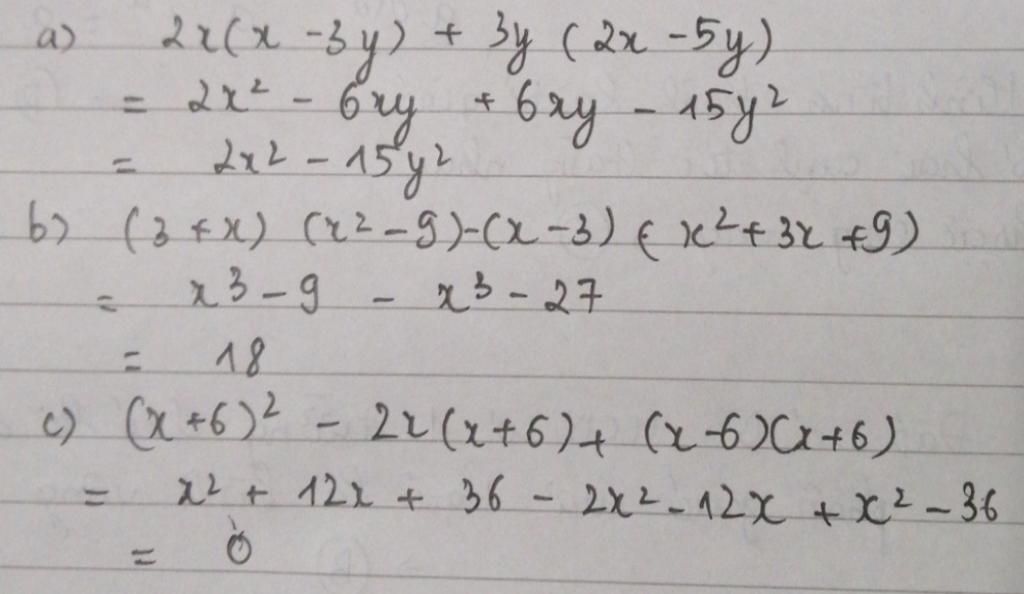 a) 2x(x - 3y) + 3y (2x - 5y)
= 2x² - 6xy + 6xy - 15y²
= 2x² - 15y²
b) (3 + x) (x² - 9) - (x - 3) (x² + 3x + 9)
= x³ - 9 - x³ - 27
= 18
c) (x + 6)² - 2x (x + 6) + (x - 6)(x + 6)
= x² + 12x + 36 - 2x² - 12x + x² - 36
= 0